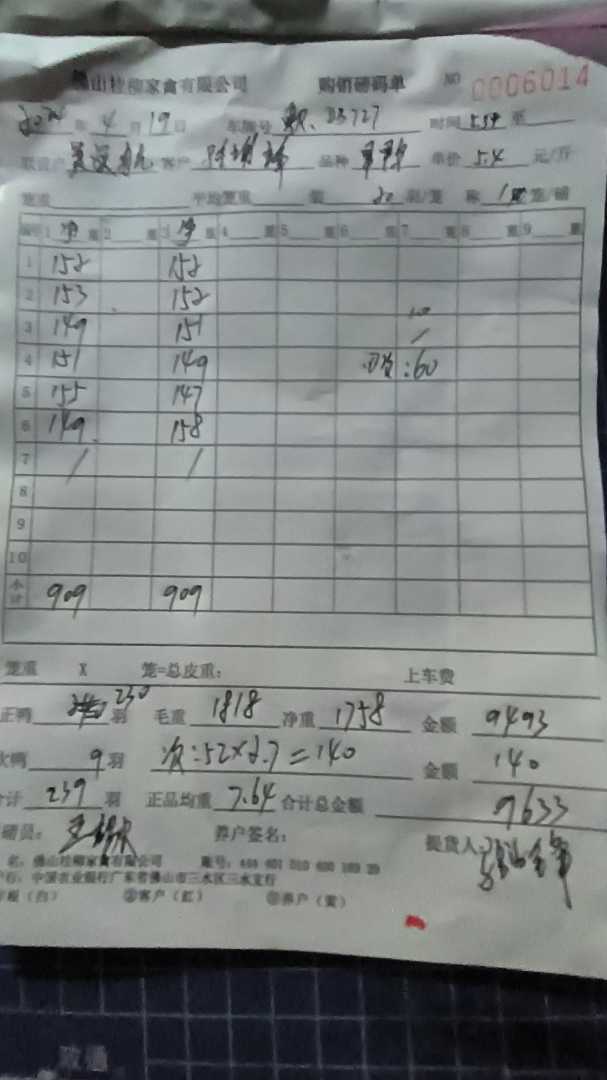 佛山桂柳家禽有限公司 购销磅码单 NO 0006014
年 4 月 19 日 车牌号 03727 时间 至
客户 品种 单价 5.4 元/斤
笼重 平均笼重 装 20 羽/笼 称 笼/磅
编号 1 净 重 2 重 3 净 重 4 重 5 重 6 重 7 重 8 重 9 重
1 152 152
2 153 152
3 149 151
4 151 149 :60
5 155 147
6 149 158
7 / /
8
9
10
小计 909 909
笼重 X 笼=总皮重: 上车费
正鸭 230 羽 毛重 1818 净重 1758 金额 9493
次鸭 9 羽 次:52×2.7=140 金额 140
合计 239 羽 正品均重 7.64 合计总金额 9633
磅员: 养户签名: 提货人:
名: 佛山桂柳家禽有限公司 账号:
行: 中国农业银行广东省佛山市三水区三水支行
(白) ②客户(红) ③养户(黄)